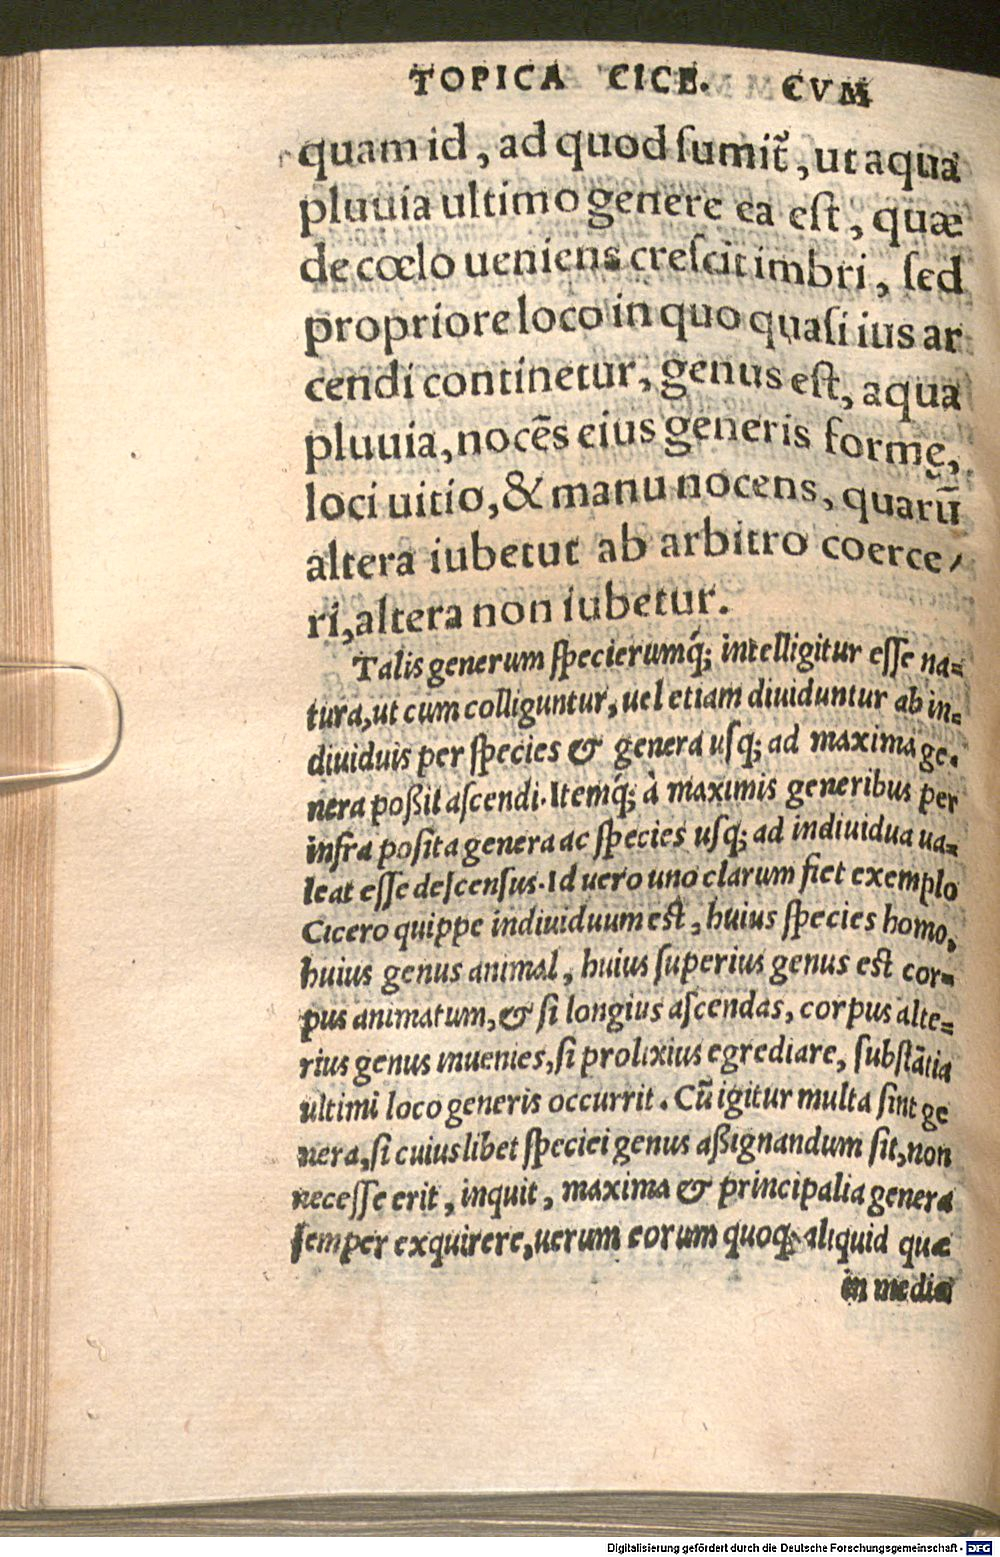 TOPICA CICE. CVM
quam id, ad quod ſumit̃, ut aqua
pluuia ultimo genere ea eſt, quæ
de cœlo ueniens creſcit imbri, ſed
propriore loco in quo quaſi ius ar
cendi continetur, genus eſt, aqua
pluuia, nocẽs eius generis formę,
loci uitio, & manu nocens, quarũ
altera iubetut ab arbitro coerce/
ri, altera non iubetur.
Talis generum ſpecierumq́; intelligitur eſſe na-
tura, ut cum colliguntur, uel etiam diuiduntur ab in-
diuiduis per ſpecies & genera uſq; ad maxima ge-
nera poßit aſcendi. Itemq́; à maximis generibus per
infra poſita genera ac ſpecies uſq; ad indiuidua ua-
leat eſſe deſcenſus. Id uero uno clarum fiet exemplo
Cicero quippe indiuiduum eſt, huius ſpecies homo,
huius genus animal, huius ſuperius genus eſt cor-
pus animatum, & ſi longius aſcendas, corpus alte-
rius genus inuenies, ſi prolixius egrediare, ſubſtãtia
ultimi loco generis occurrit. Cũ igitur multa ſint ge
nera, ſi cuiuslibet ſpeciei genus aßignandum ſit, non
neceſſe erit, inquit, maxima & principalia genera
ſemper exquirere, uerum eorum quoq; aliquid quæ
in media
Digitalisierung gefördert durch die Deutsche Forschungsgemeinschaft - DFG